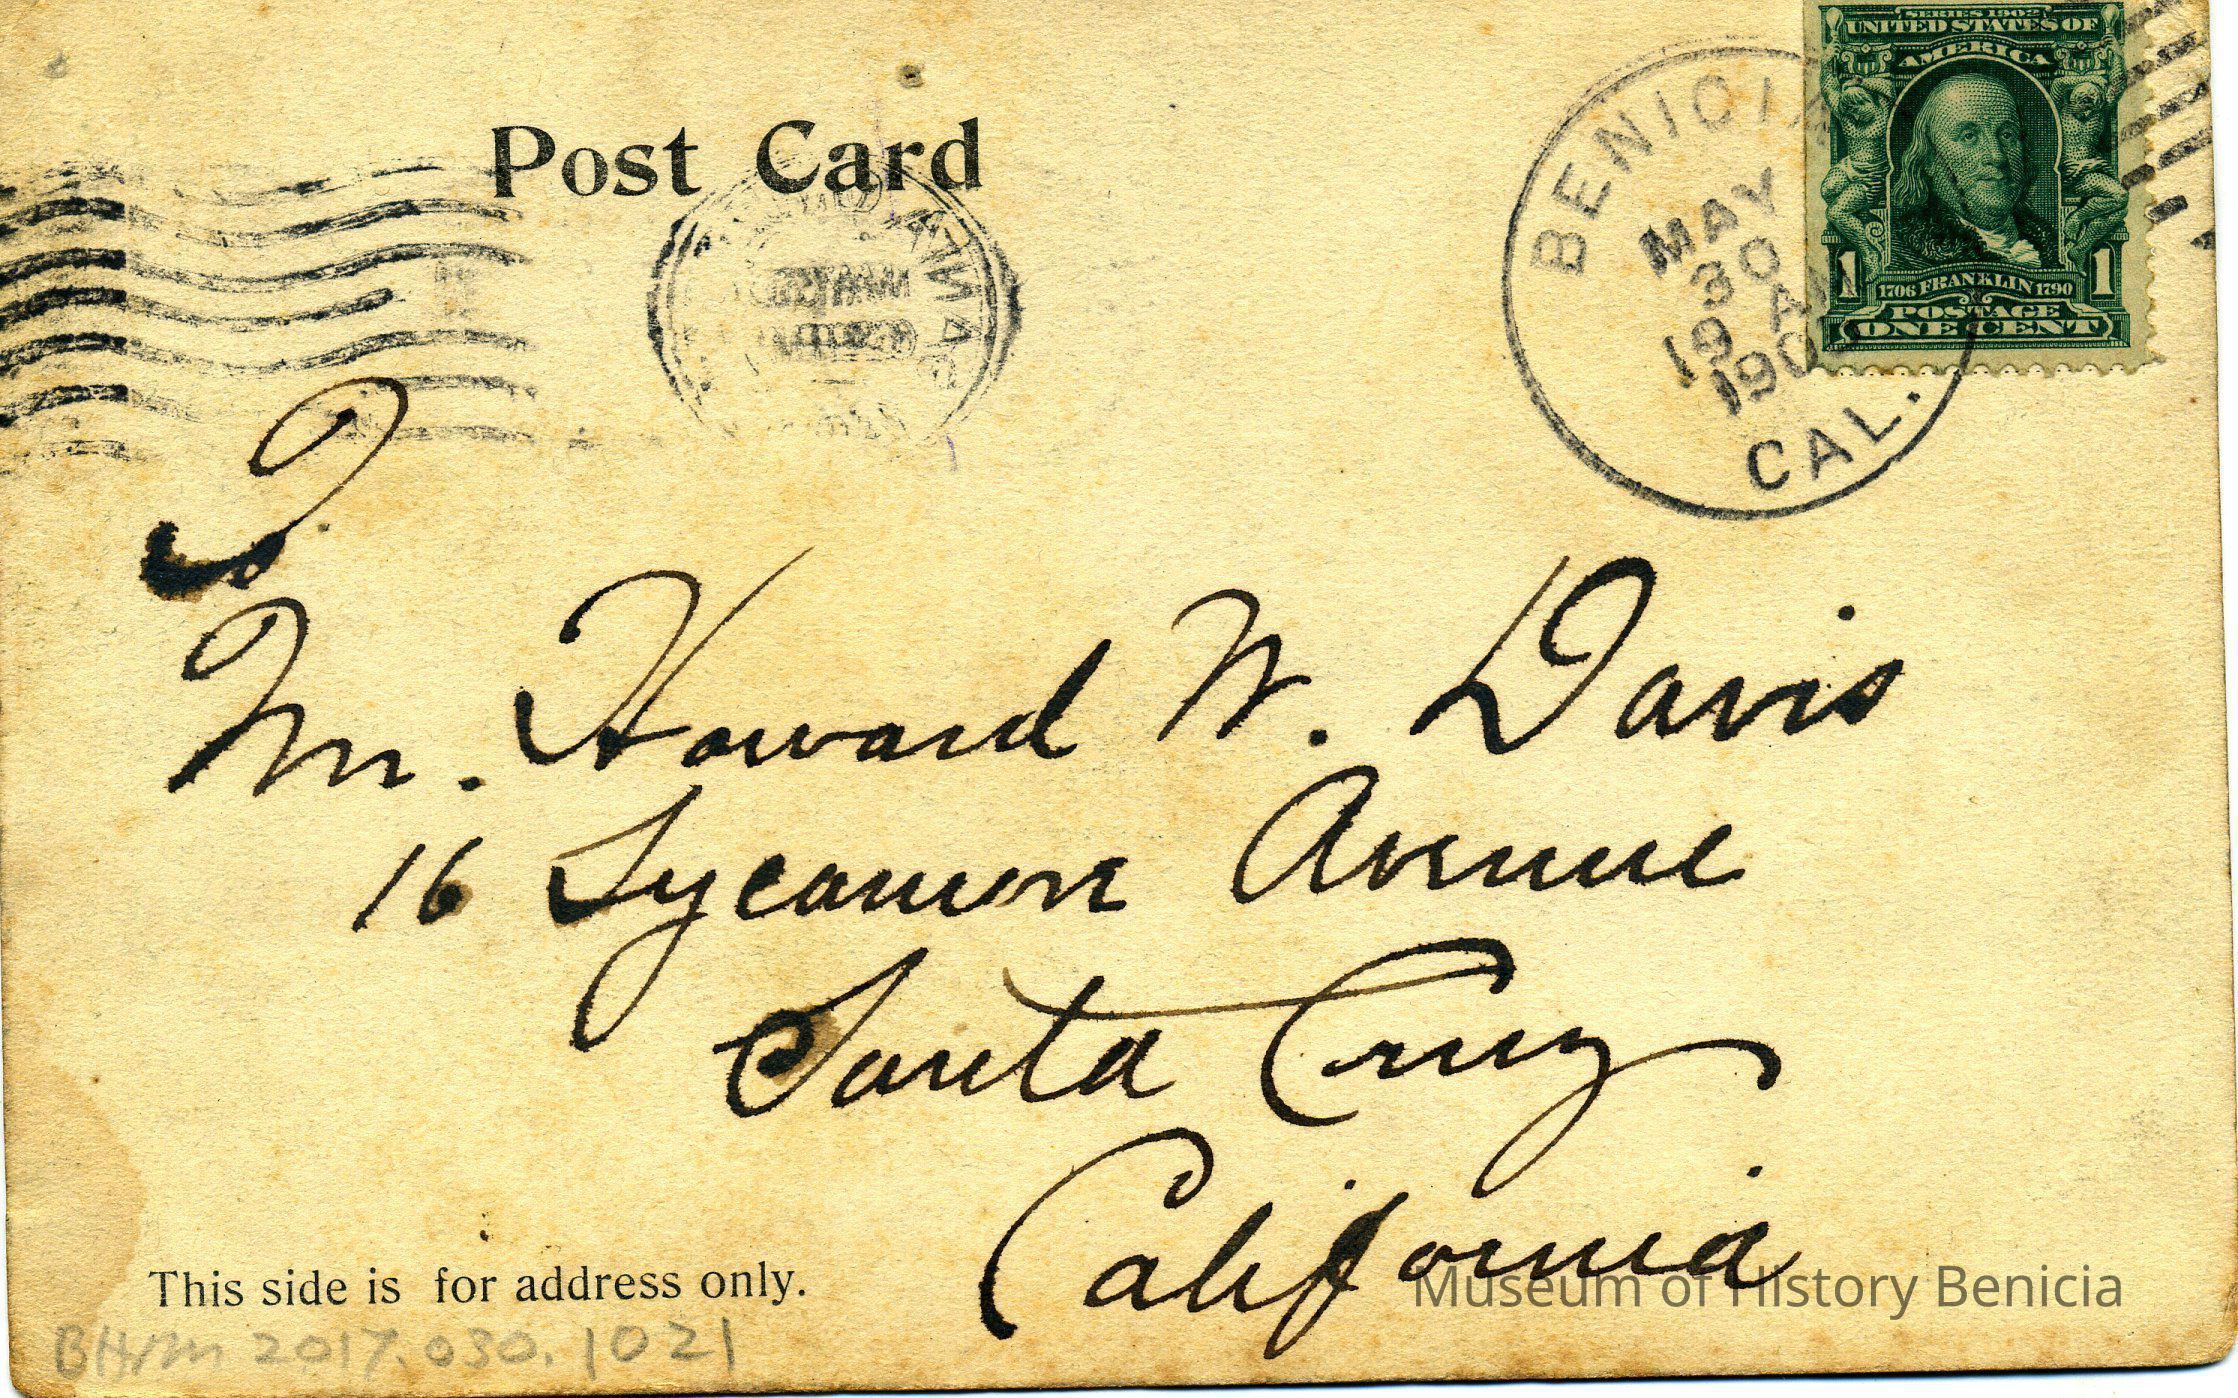 Post Card
BENICIA
MAY
30
CAL.
SERIES 1902
UNITED STATES OF
AMERICA
1 1706 FRANKLIN 1790 1
POSTAGE
ONE CENT
Mr. Howard W. Davis
16 Sycamore Avenue
Santa Cruz
California
This side is for address only.
Museum of History Benicia
BHM 2017.030.1021